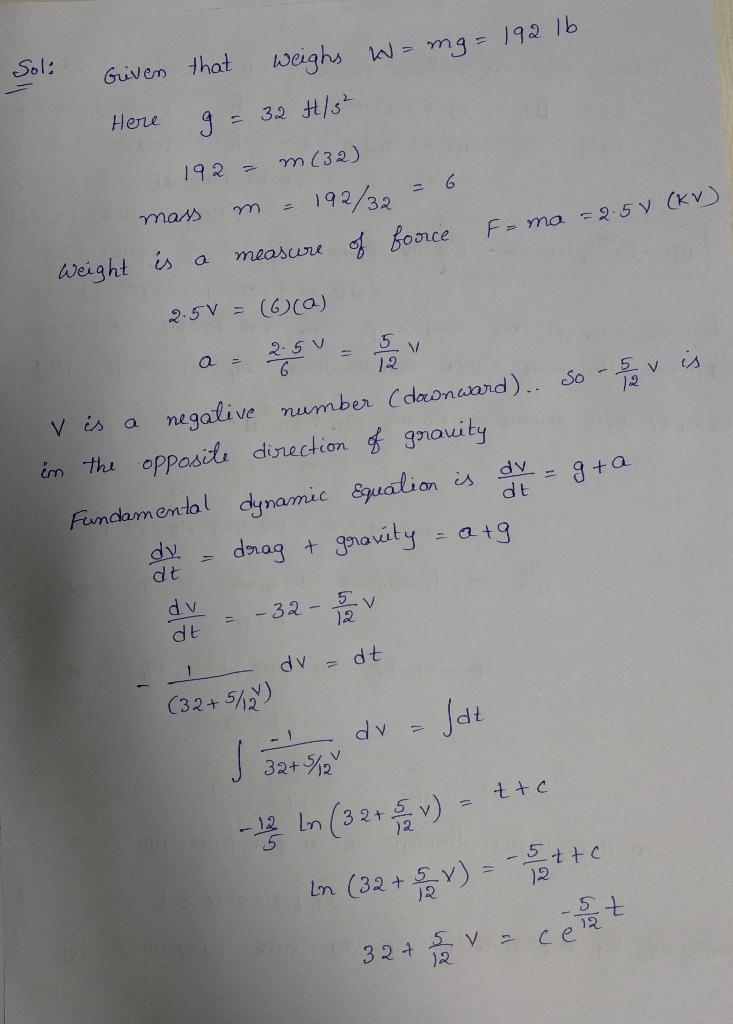 Sol: Given that weighs W = mg = 192 lb
Here g = 32 ft/s²
192 = m(32)
mass m = 192/32 = 6
Weight is a measure of foorce F = ma = 2.5V (KV)
2.5V = (6)(a)
a = 2.5V/6 = 5/12 V
V is a negative number (downward).. So - 5/12 V is
in the opposite direction of gravity
Fundamental dynamic Equation is dv/dt = g+a
dv/dt = drag + gravity = a+g
dv/dt = -32 - 5/12 V
- 1/(32+5/12 V) dv = dt
∫ -1/(32+5/12 V) dv = ∫dt
-12/5 ln (32+ 5/12 V) = t+c
ln (32+ 5/12 V) = -5/12 t+c
32+ 5/12 V = ce^(-5/12 t)